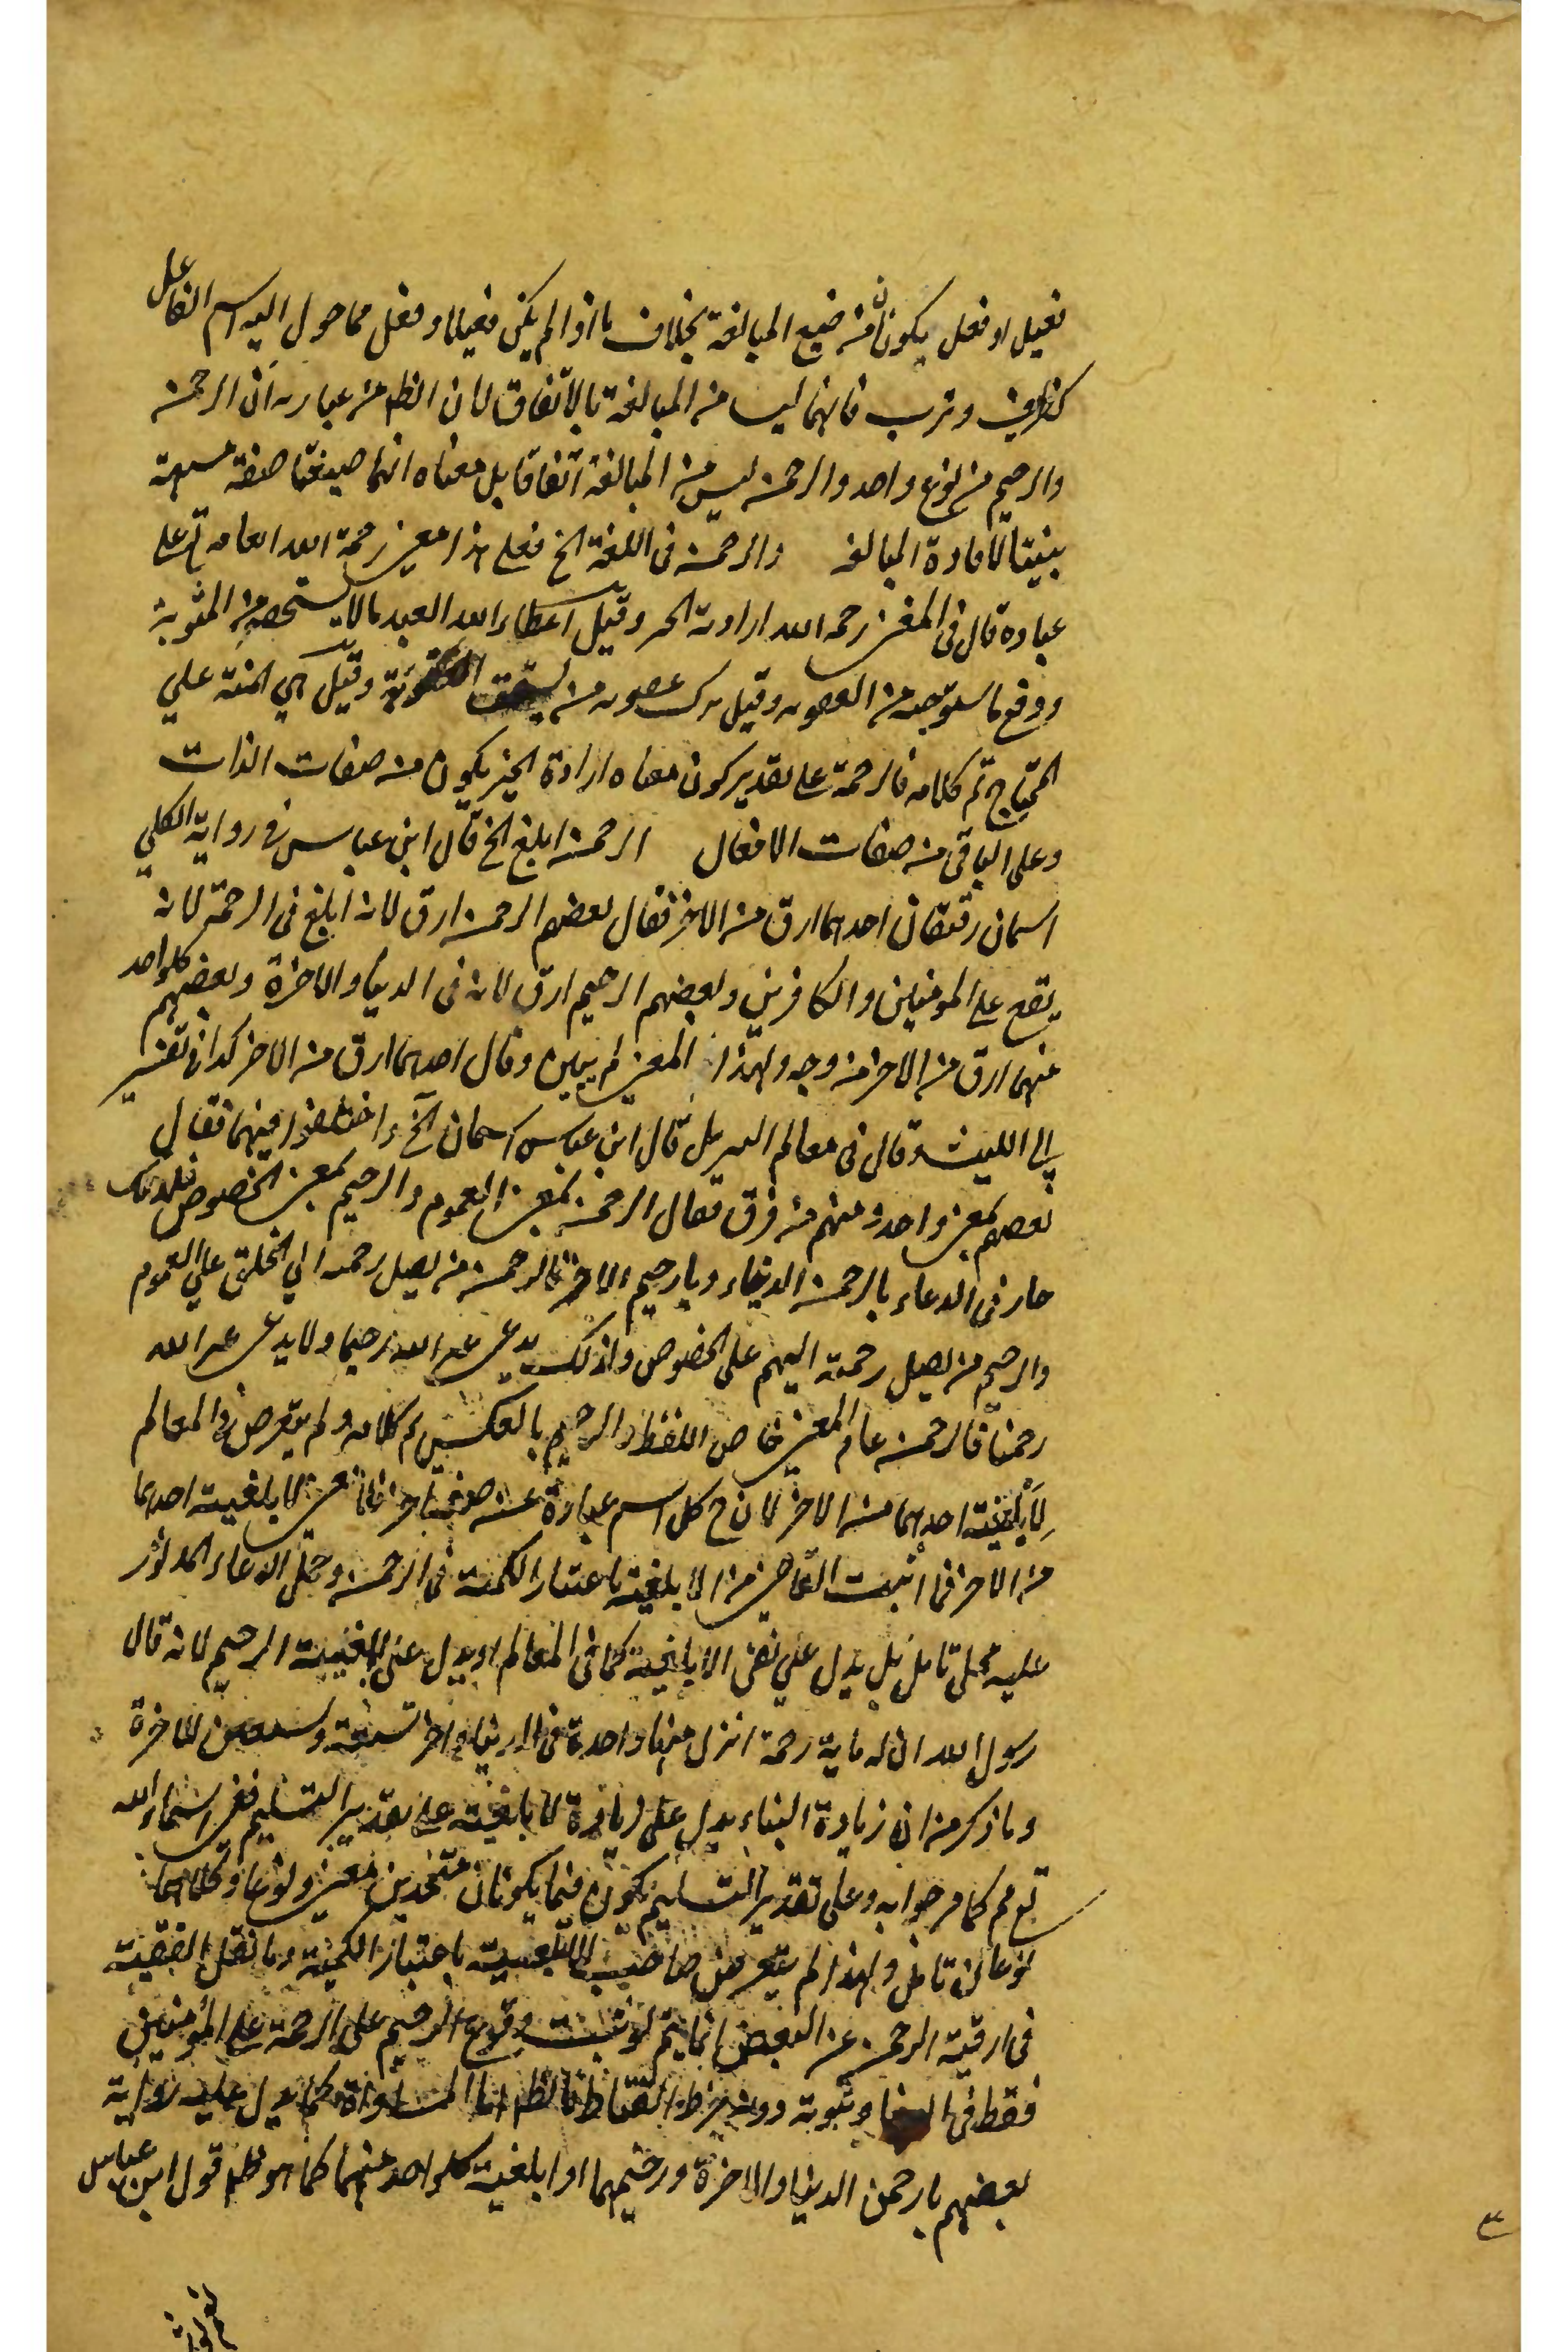 فعيل او فعل يكونان من صيغ المبالغة بخلاف ما اذا لم يكن فعيلا وفعل مما حول اليه اسم الفاعل
كظريف وترب فانهما ليسا من المبالغة بالاتفاق لان الظ من عبارته ان الرحمن
والرحيم من نوع واحد والرحمن ليس من المبالغة اتفاقا بل معناه انهما صيغتا صفة مشبهة
بنيتا لافادة المبالغة والرحمن في اللغة الخ فعلى هذا معنى رحمة الله العامة تع على
عباده قال في المغني رحمه الله ارادته الخير وقيل اعطاء الله العبد مالا يستحقه من المثوبة
ودفع ما يستوجبه من العقوبة وقيل ترك عقوبة من يستحق العقوبة وقيل هي المنة على
المحتاج تم كلامه فالرحمة على تقدير كون معناه ارادة الخير يكون من صفات الذات
وعلى الباقي من صفات الافعال الرحمن ابلغ الخ قال ابن عباس في رواية الكلبي
اسمان رقيقان احدهما ارق من الاخر فقال بعضهم الرحمن ارق لانه ابلغ في الرحمة لانه
يقع على المومنين والكافرين وبعضهم الرحيم ارق لانه في الدنيا والاخرة وبعضهم كلواحد
منهما ارق من الاخر من وجه ولهذا المعنى لم يبين وقال احدهما ارق من الاخر كذا في تفسير
ابي الليث وقال في معالم التنزيل قال ابن عباس اسمان الخ واختلفوا فيهما فقال
بعضهم بمعنى واحد ومنهم من فرق فقال الرحمن بمعنى العموم والرحيم بمعنى الخصوص فلذلك
جاز في الدعاء يا رحمن الدنيا ويا رحيم الاخرة فالرحمن من يصل رحمته الى الخلق على العموم
والرحيم من يصل رحمته اليهم على الخصوص ولذلك يدعى غير الله رحيما ولا يدعى غير الله
رحمنا فالرحمن عام المعنى خاص اللفظ والرحيم بالعكس تم كلامه ولم يتعرض في المعالم
لابلغية احدهما من الاخر لان ح كل اسم عبارة عن صفة اخرى فلا معنى لابلغية احدهما
من الاخر فما اثبت القاضي من الابلغية باعتبار الكمية في الرحمن وحمل الدعاء المذكور
عليه محل تامل بل يدل على نفي الابلغية كما في المعالم او يدل على ابلغية الرحيم لانه قال
رسول الله ان لله ماية رحمة انزل منها واحدة في الدنيا واخر تسعة وتسعين للاخرة
وما ذكر من ان زيادة البناء يدل على زيادة الابلغية على تقدير التسليم ففي اسماء الله
تع مم كما مر جوابه وعلى تقدير التسليم يكون فيما يكونان متحدين معنى ونوعا وكلاهما
نوعان تامل ولهذا لم يتعرض صاحب الابلغية باعتبار الكمية وما نقل الفقيه
في ارقية الرحمن عن البعض انما يتم لو ثبت وقوع الرحيم على الرحمة على المؤمنين
فقط في الدنيا وثبوته دونه خرط القتاد فالظ اما المساواة كما يدل عليه رواية
بعضهم يا رحمن الدنيا والاخرة ورحيمهما او ابلغية كلواحد منهما كما هو ظ قول ابن عباس
٣